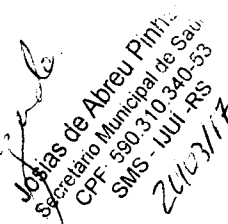 Josias de Abreu Pinh
Secretário Municipal de Saú
CPF: 590.310.340-53
SMS - IJUÍ - RS